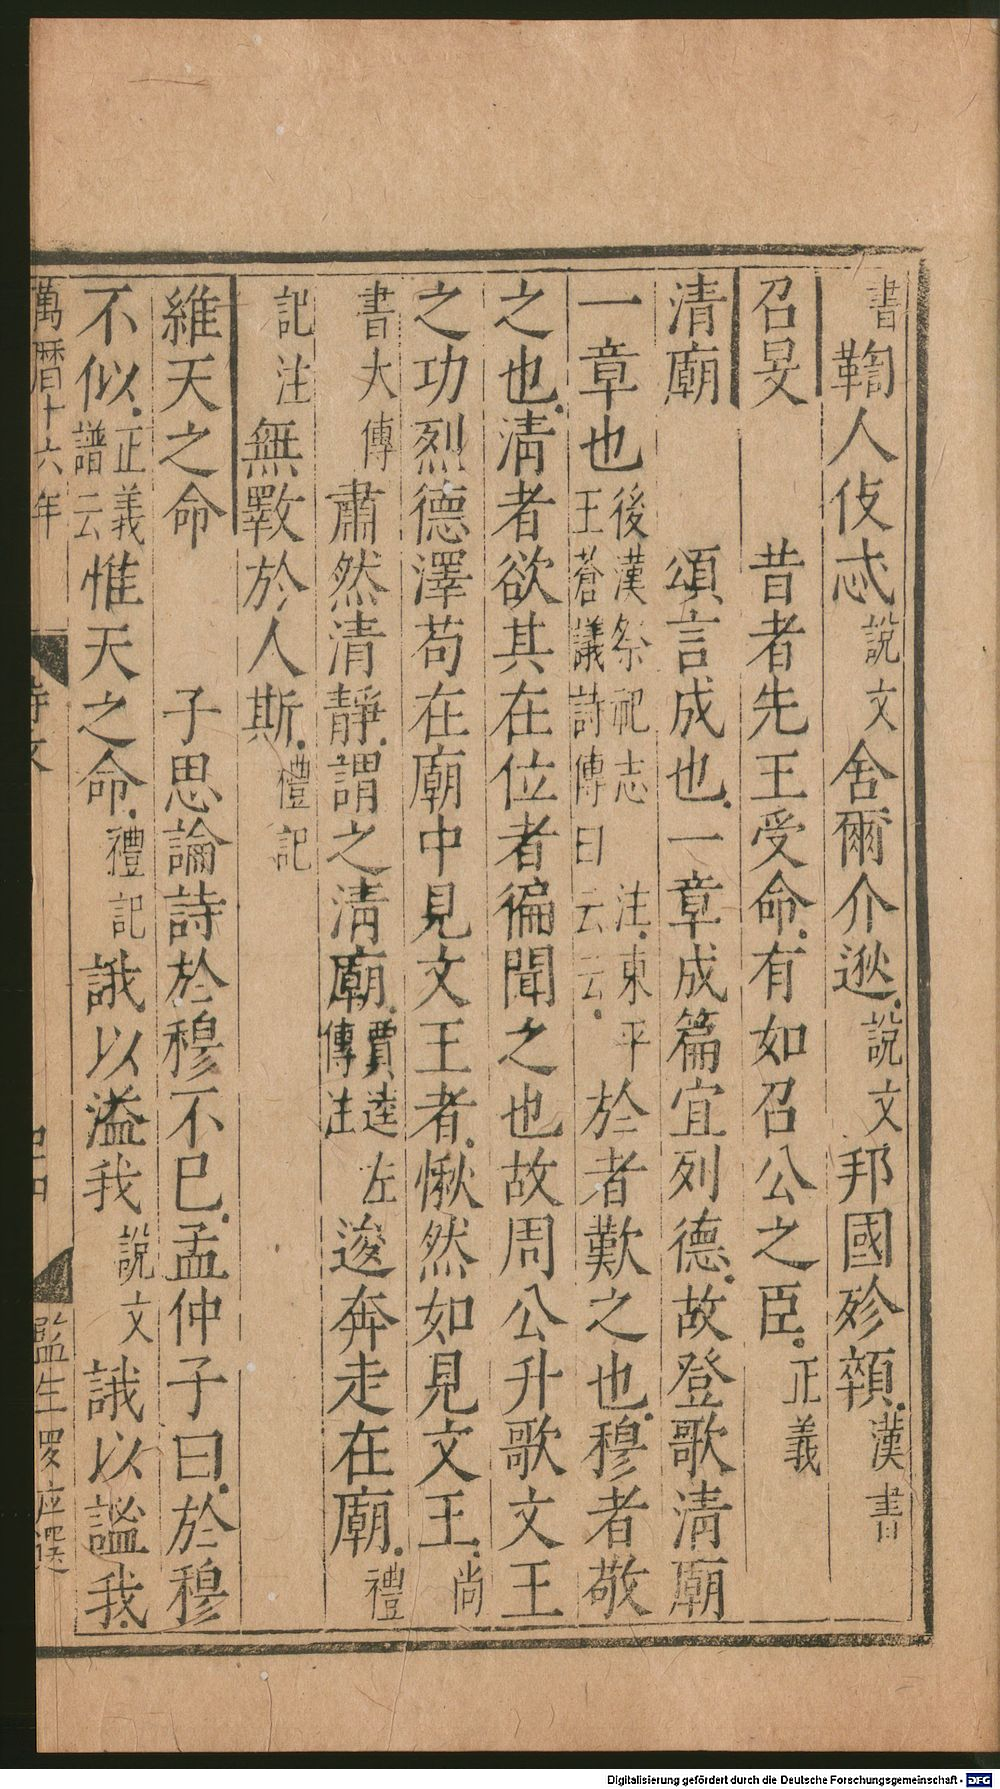 書鞫人伎忒說文舍爾介逖說文邦國殄顇漢書
召旻　昔者先王受命有如召公之臣正義
清廟　頌言成也一章成篇宜列德故登歌清廟
一章也後漢祭祀志注東平王蒼議詩傳曰云云於者歎之也穆者敬
之也清者欲其在位者徧聞之也故周公升歌文王
之功烈德澤苟在廟中見文王者愀然如見文王尚
書大傳肅然清靜謂之清廟賈逵左傳注逡奔走在廟禮
記注無斁於人斯禮記
維天之命　子思論詩於穆不巳孟仲子曰於穆
不似正義譜云惟天之命禮記誐以溢我說文誐以謐我
萬曆十六年　詩攷　監生
Digitalisierung gefördert durch die Deutsche Forschungsgemeinschaft - DFG